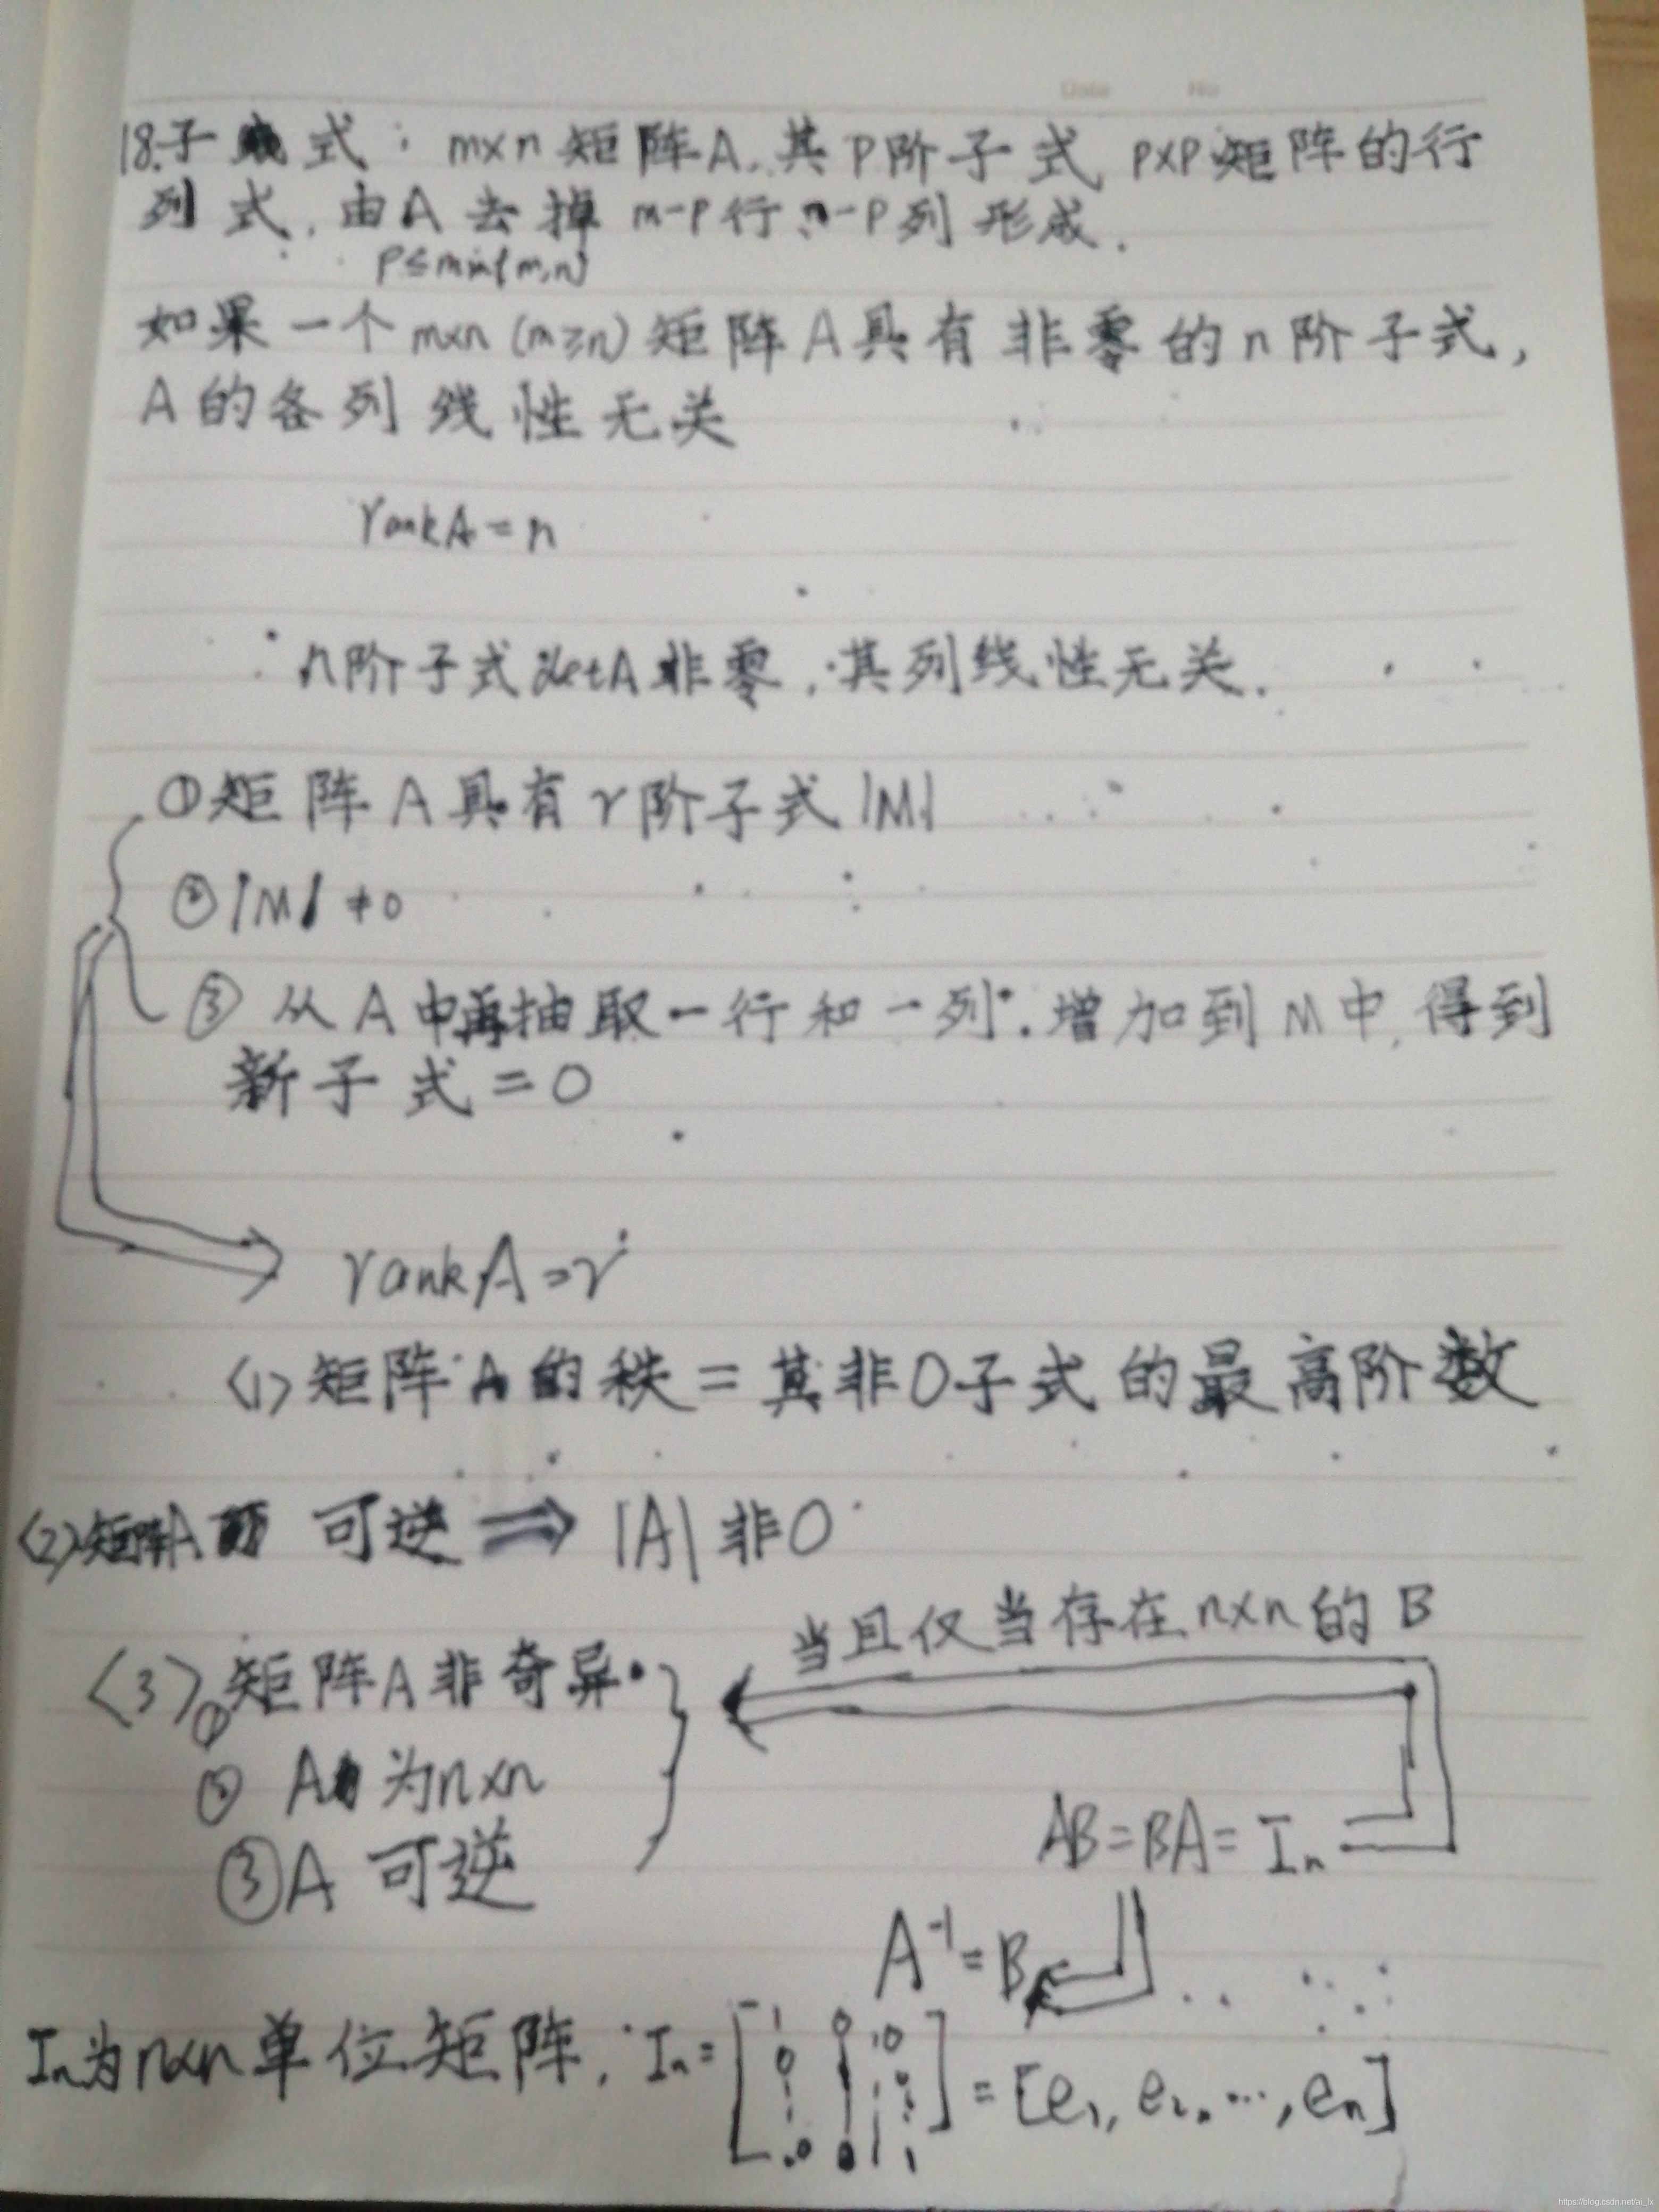 Date No
18.子式：m×n矩阵A.其P阶子式 P×P矩阵的行
列式，由A去掉m-P行、n-P列形成.
P≤min{m,n}
如果一个m×n(m≥n)矩阵A具有非零的n阶子式，
A的各列线性无关
rankA=n
n阶子式detA非零，其列线性无关.
①矩阵A具有r阶子式|M|
②|M|≠0
③从A中再抽取一行和一列.增加到M中,得到
新子式=0
rankA=r
<1>矩阵A的秩=其非0子式的最高阶数
<2>矩阵A 可逆⇒|A|非0
当且仅当存在n×n的B
<3>①矩阵A非奇异
② A为n×n
AB=BA=In
③A可逆
A⁻¹=B
In为n×n单位矩阵, In=[1 0 0 0 0 1]=[e1, e2, ···, en]
https://blog.csdn.net/ai_lx